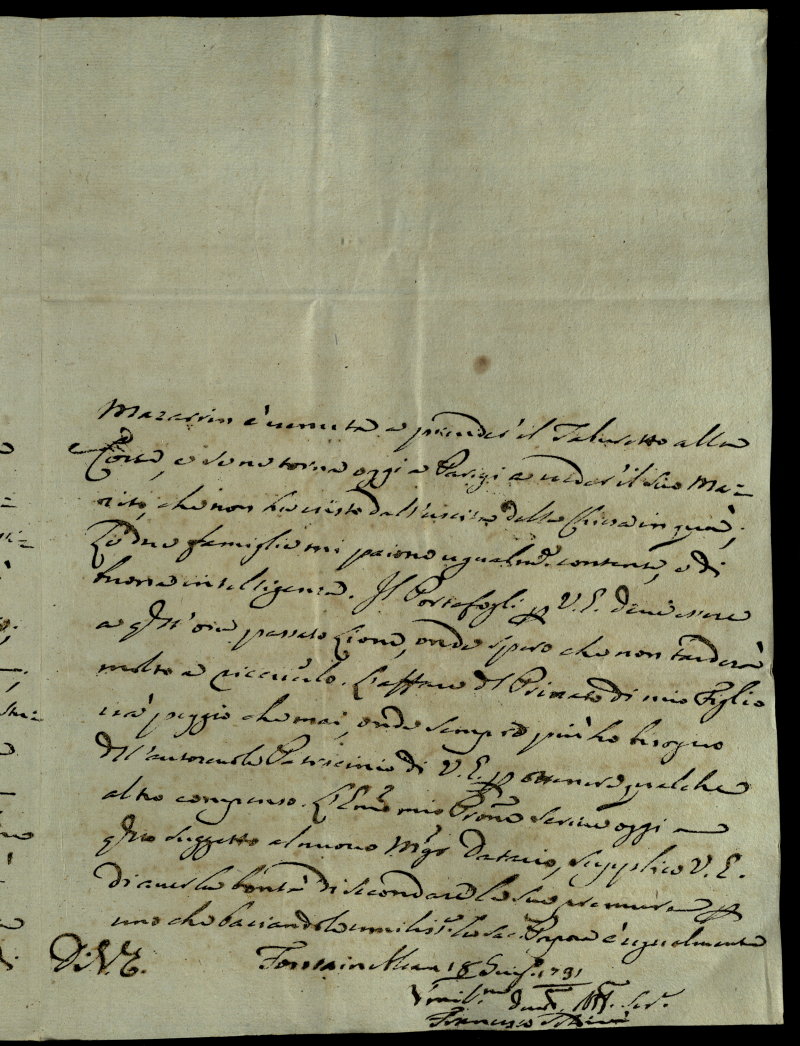 Mazarin è venuta a prender'il Taburetto alla
Corte, e se ne torna oggi a Parigi a veder'il suo Ma=
rito, che non ha visto dall'uscita della Chiesa in quà;
Le due famiglie mi paiono ugualm.e contente, e di
buona intelligenza. Il Portafogli p V. E. deve essere
a q.st'ora passato Lione, onde spero che non tarderà
molto a riceverlo. L'affare d'l Primato di mio Figlio
và peggio che mai, onde sempre più hò bisogno
d'll'autorevole Patrocinio di V. E. p ottenere qualche
altro compenso. L'Em.o mio Prone scrive oggi
q.sto suggetto al nuovo Mg.r Datario, supplico V. E.
di aver la bontà di secondare le sue premure p
uno che baciandole umilis.te la Sac. Porpora è ugualmente
Di V. E. Fontainebleau 18
Umil.mo
Francesco